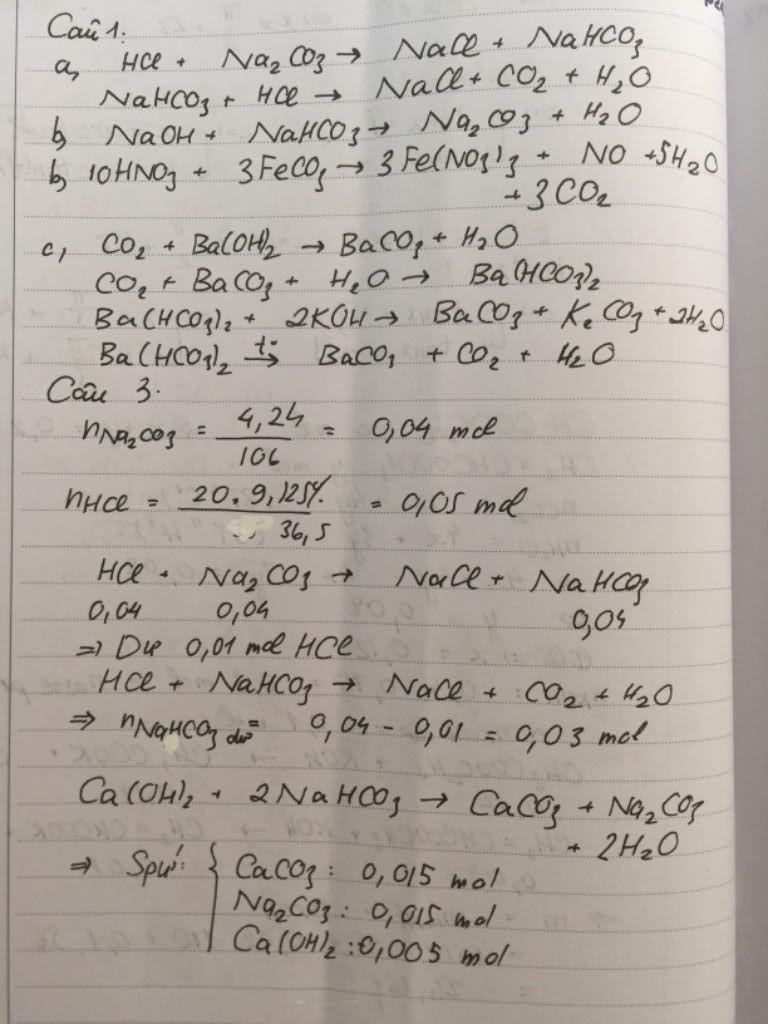 Câu 1:
a, HCl + Na₂CO₃ → NaCl + NaHCO₃
NaHCO₃ + HCl → NaCl + CO₂ + H₂O
b, NaOH + NaHCO₃ → Na₂CO₃ + H₂O
b, 10HNO₃ + 3FeCO₃ → 3Fe(NO₃)₃ + NO + 5H₂O
+ 3CO₂
c, CO₂ + Ba(OH)₂ → BaCO₃ + H₂O
CO₂ + BaCO₃ + H₂O → Ba(HCO₃)₂
Ba(HCO₃)₂ + 2KOH → BaCO₃ + K₂CO₃ + 2H₂O
Ba(HCO₃)₂ t° → BaCO₃ + CO₂ + H₂O
Câu 3.
nNa₂CO₃ = 4,24 / 106 = 0,04 mol
nHCl = 20.9,125% / 36,5 = 0,05 mol
HCl + Na₂CO₃ → NaCl + NaHCO₃
0,04 0,04 0,04
⇒ Dư 0,01 mol HCl
HCl + NaHCO₃ → NaCl + CO₂ + H₂O
⇒ nNaHCO₃ dư = 0,04 - 0,01 = 0,03 mol
Ca(OH)₂ + 2NaHCO₃ → CaCO₃ + Na₂CO₃
+ 2H₂O
⇒ Spứ: { CaCO₃ : 0,015 mol
Na₂CO₃ : 0,015 mol
Ca(OH)₂ : 0,005 mol